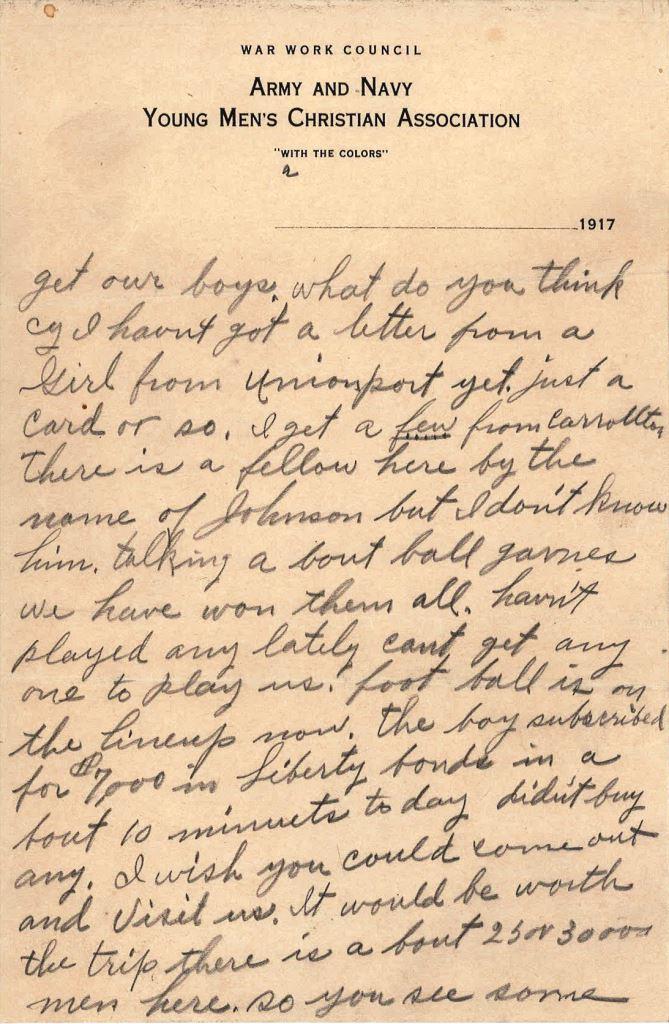 WAR WORK COUNCIL
ARMY AND NAVY
YOUNG MEN'S CHRISTIAN ASSOCIATION
"WITH THE COLORS"
2
1917
get our boys. what do you think
cy I havnt got a letter from a
Girl from Unionport yet. just a
Card or so. I get a few from Carrollton
There is a fellow here by the
name of Johnson but I don't know
him. talking a bout ball games
we have won them all. havn't
played any lately cant get any
one to play us. foot ball is on
the lineup now. the boy subscribed
for $7000 in Liberty bonds in a
bout 10 minuets to day didn't buy
any. I wish you could come out
and Visit us. It would be worth
the trip there is a bout 25 or 30000
men here. so you see some